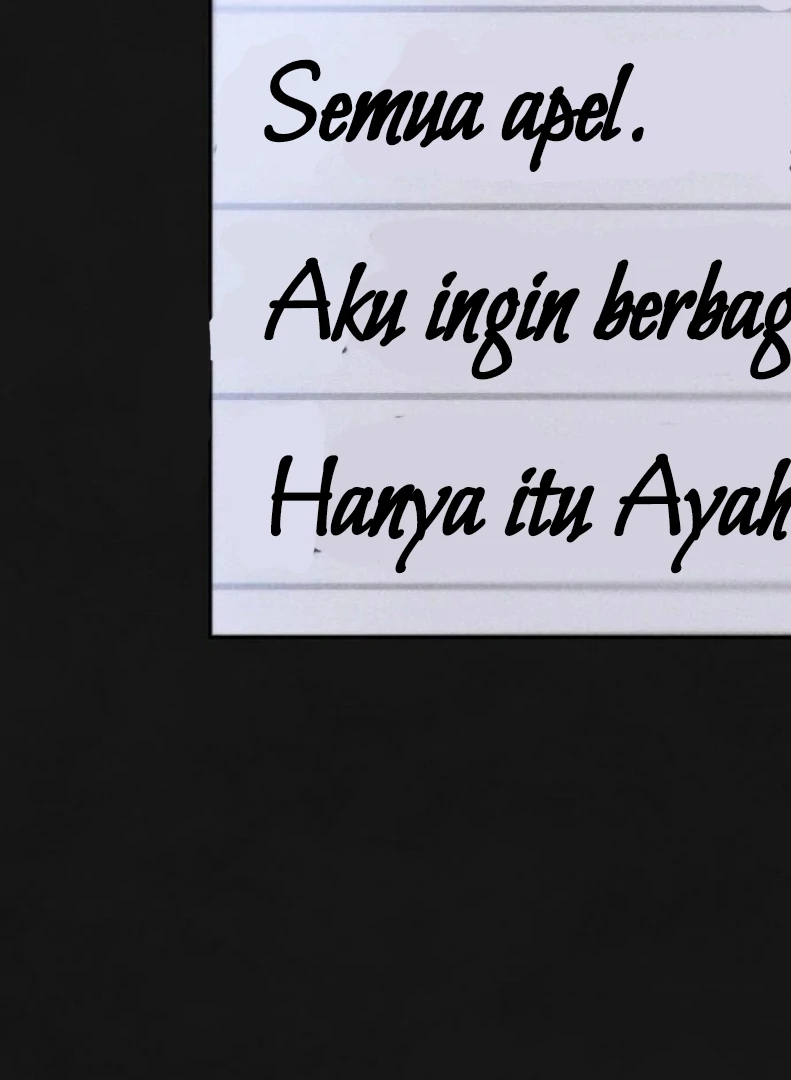 Semua apel.
Aku ingin berbag
Hanya itu Ayah